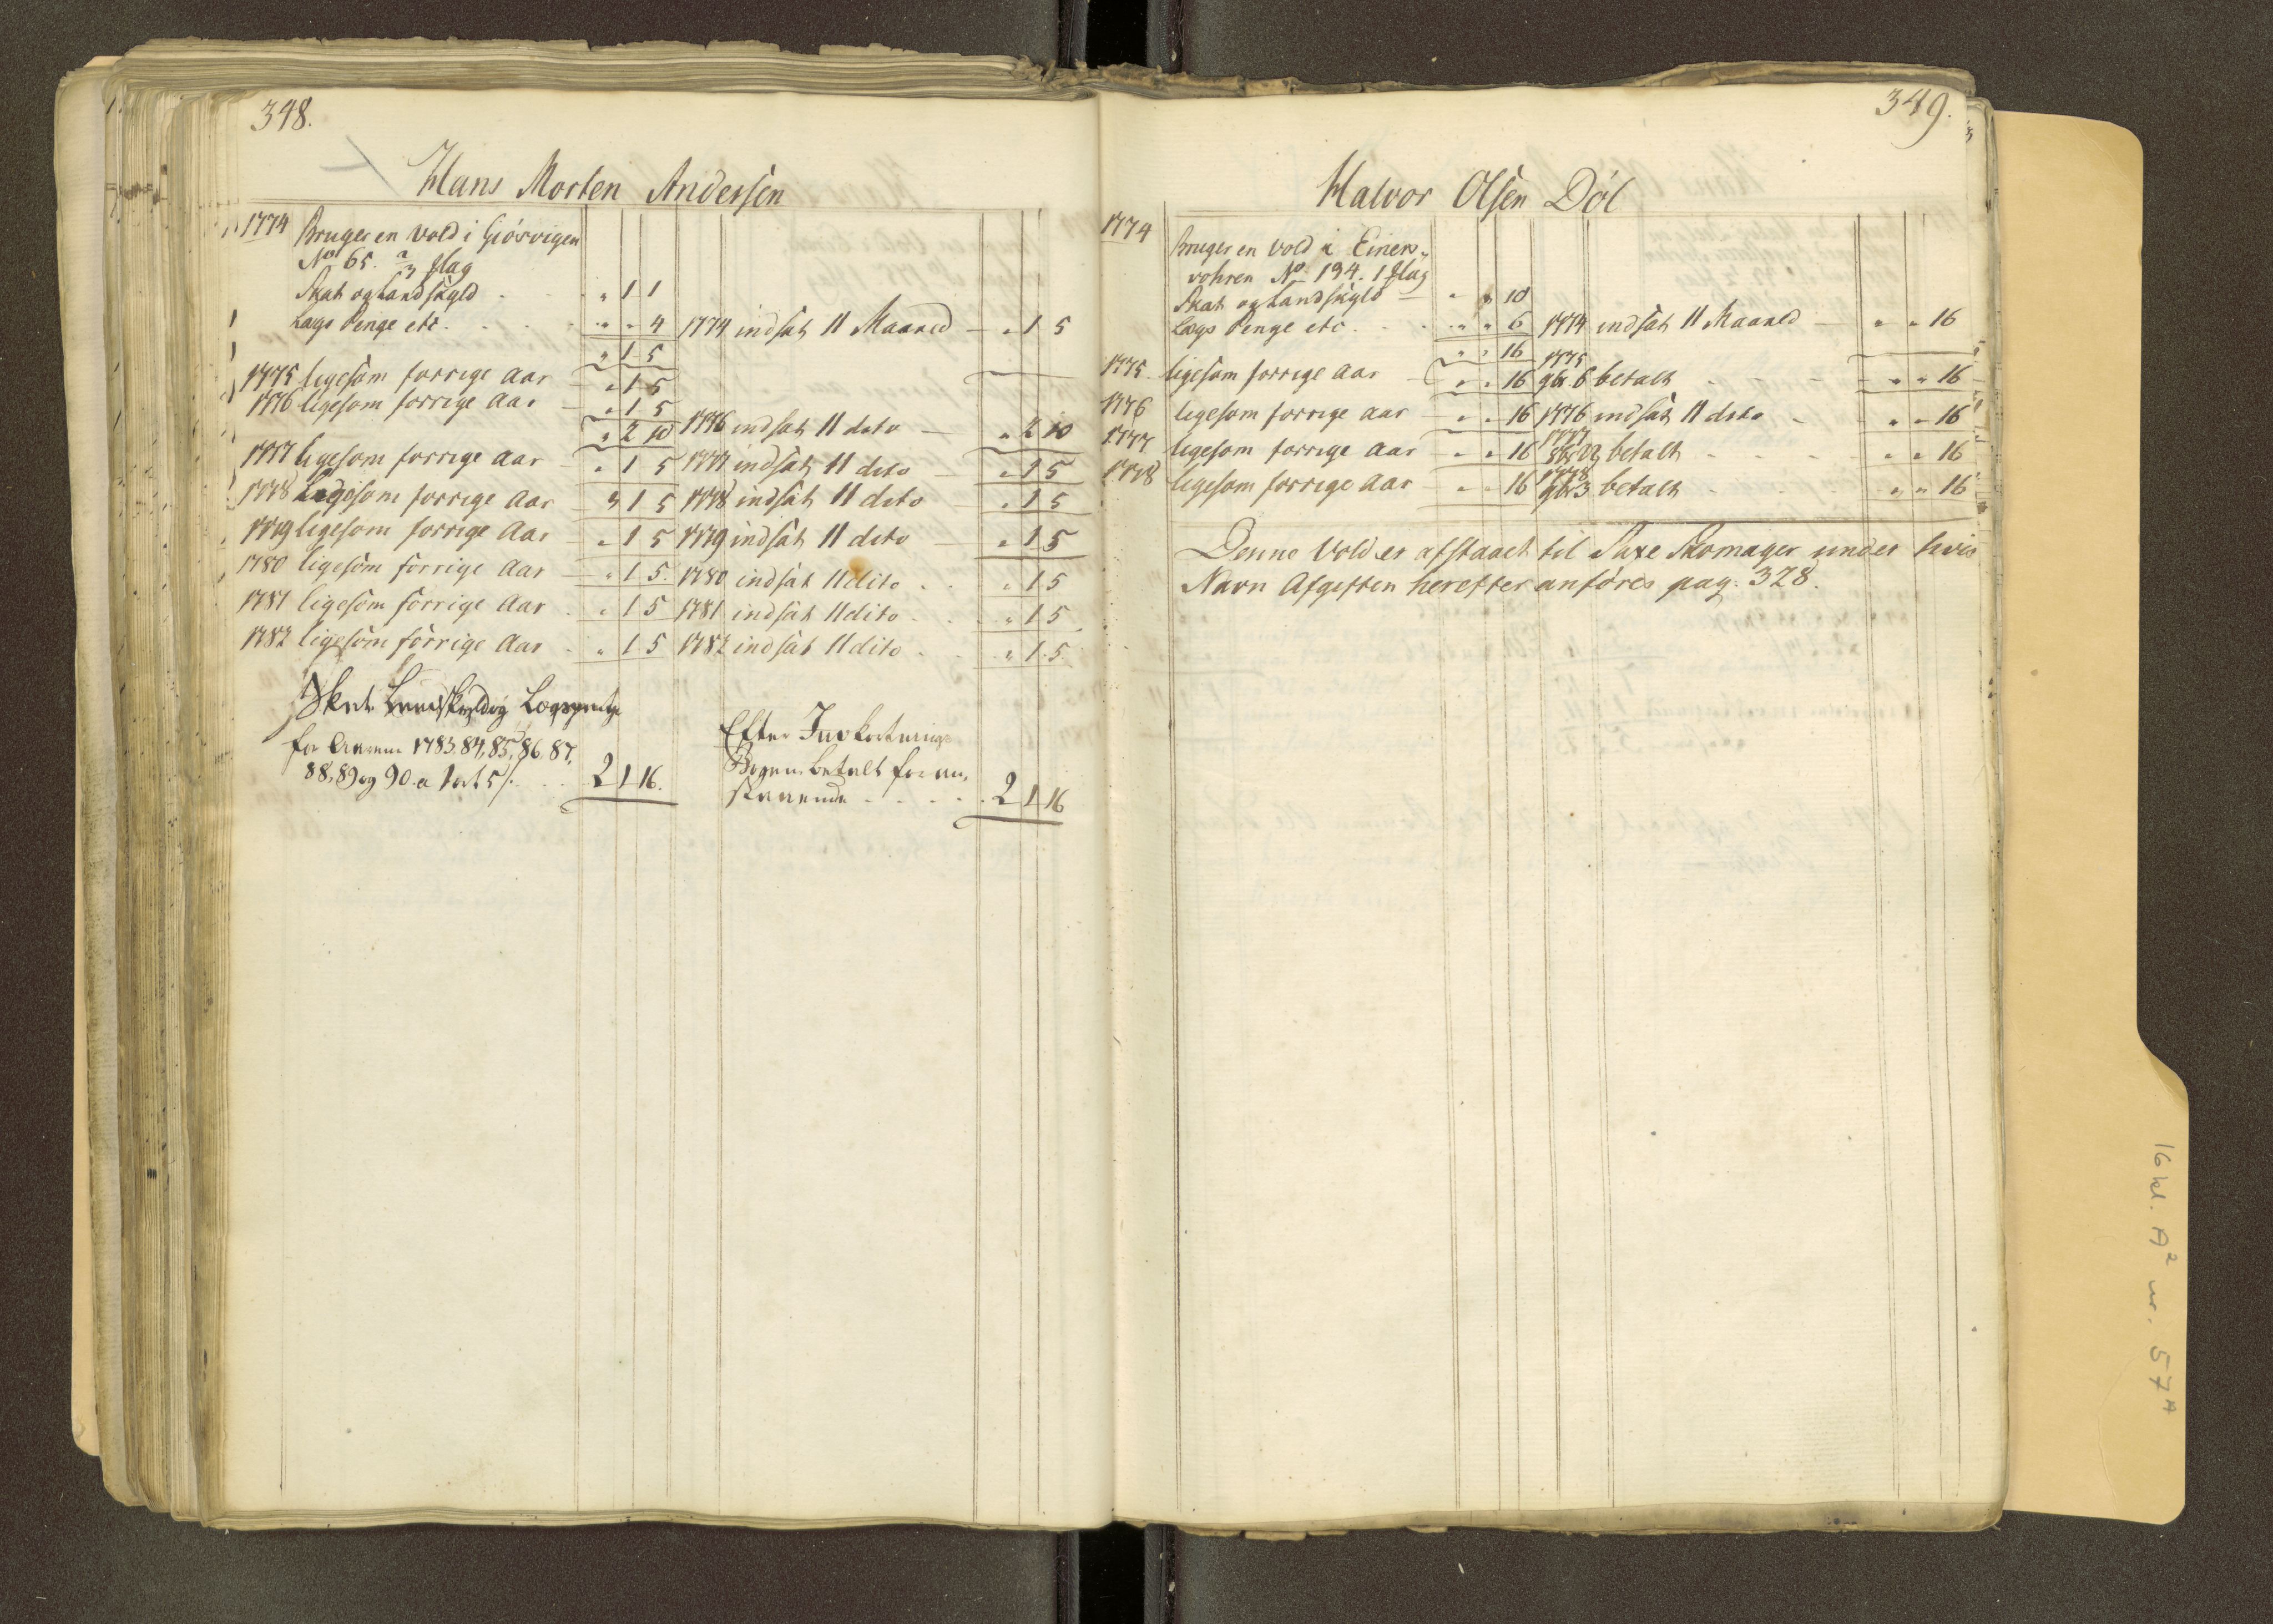 348.
Hans Morten Andersen
1774 Bruger en Vold i Giörvigen
No 65. 2/3 flag
Skat og Landskyld . . " 1 1
Laugs Penge etc. . . . " " 4 1774 indsat 11 Maaned — " 1 5
" 1 5
1775 ligesom forrige Aar — " 1 5
1776 ligesom forrige Aar — " 1 5
" 2 10 1776 indsat 11 dito — " 2 10
1777 ligesom forrige Aar — " 1 5 1777 indsat 11 dito — " 1 5
1778 ligesom forrige Aar " 1 5 1778 indsat 11 dito " 1 5
1779 ligesom forrige Aar — " 1 5 1779 indsat 11 dito — " 1 5
1780 ligesom forrige Aar — " 1 5. 1780 indsat 11 dito . . " 1 5
1781 ligesom forrige Aar . " 1 5 1781 indsat 11 dito . . " 1 5
1782 ligesom forrige Aar . " 1 5 1782 indsat 11 dito . . " 1 5.
Skat Landskyld og Laugspenge
for Aarene 1783. 84, 85, 86, 87,
88, 89 og 90. a 1 ort 5 s. . . 2 1 16.
Efter Indkortnings
Bogen betalt for an,
staaende . . . . . 2 1 16
349.
Halvor Olsen Döl
1774 Bruger en Vold i Einer,,
vohren No 194. 1 flag
Skat og Landskyld — " " 10
Laugs Penge etc. . . " " 6 1774 indsat 11 Maaned — " " 16
" " 16
1775 ligesom forrige Aar — " " 16 1775 9br. 6 betalt . . — " " 16
1776 ligesom forrige Aar — " " 16 1776 indsat 11 dito — " " 16
1777 ligesom forrige Aar — " " 16 1777 betalt . . . " " 16
1778 ligesom forrige Aar — " " 16 1778 9br 3 betalt . . . " " 16
Denne Vold er afstaaet til Skomager under hvis
Navn Afgiften herefter anföres pag. 328.
16 kl. A² nr. 57ᴬ